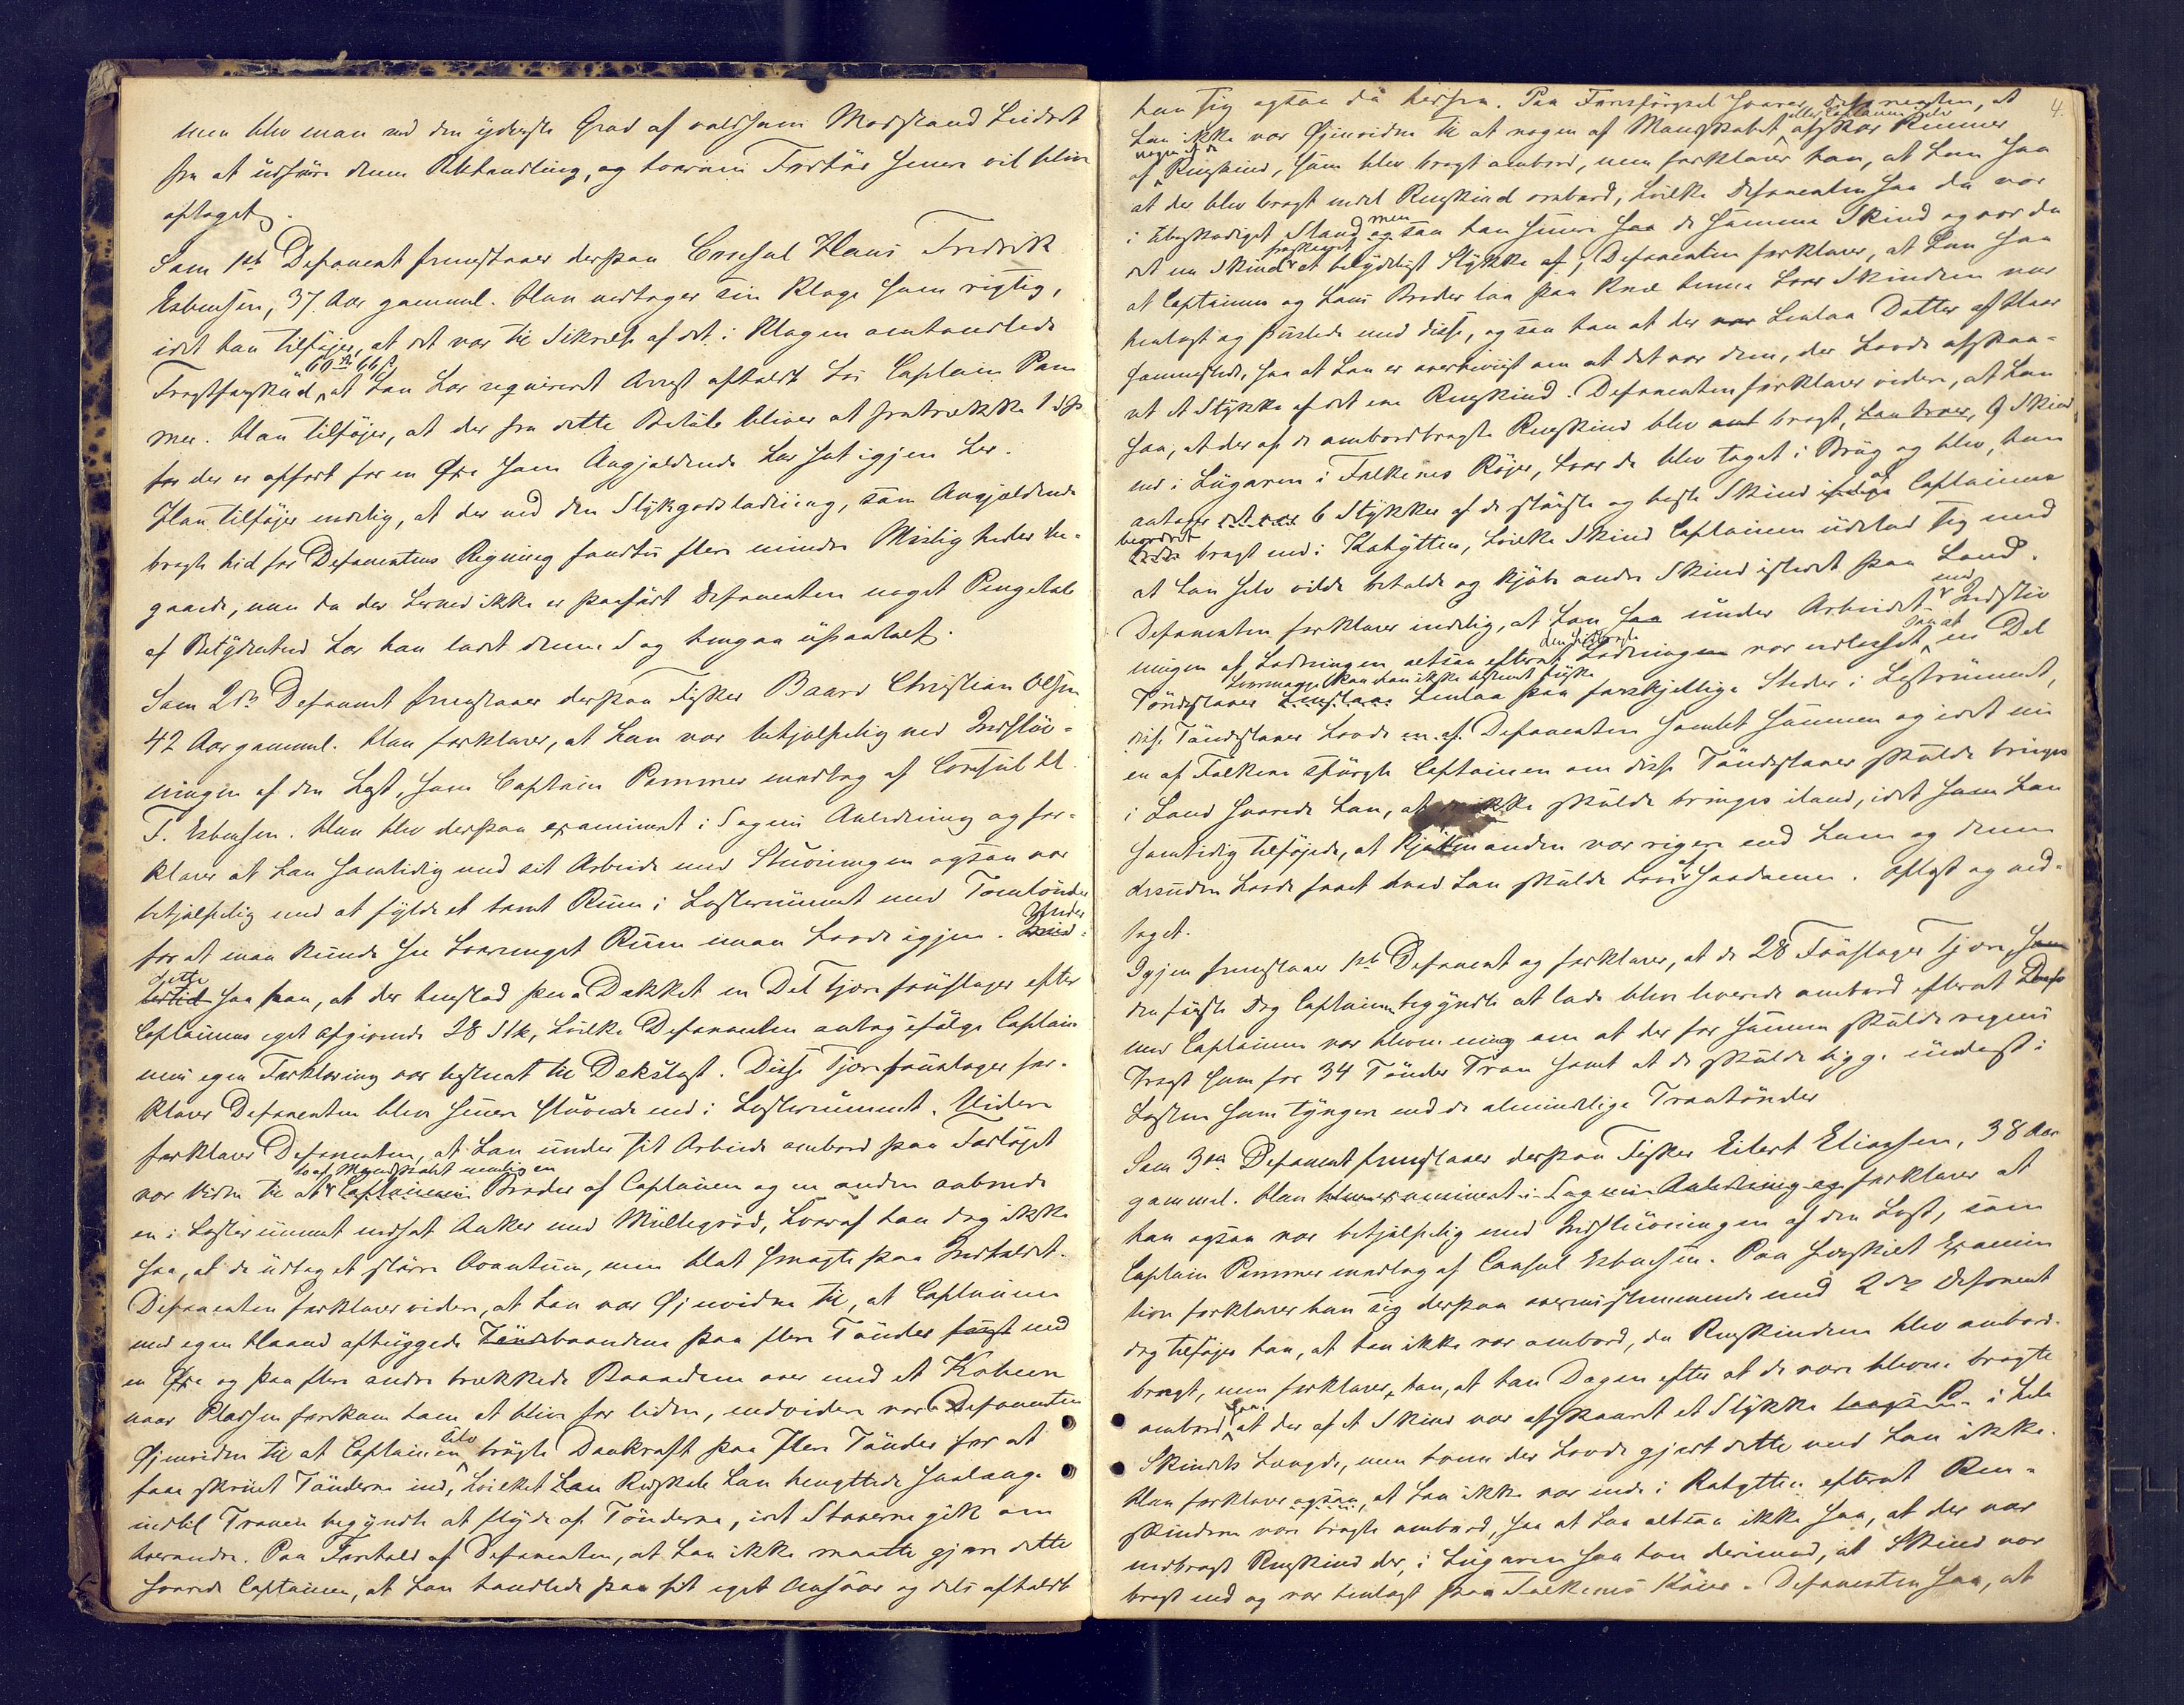 men blev man ved den yderste Grad af voldsom Modstand hindret
fra at udføre denne Behandling, og hvorom Forhør senere vil blive
optaget.
Som 1ste Deponent fremstaaer derpaa Consul Hans Fredrik
Esbensen, 37 Aar gammel. Han vedtager sin Klage som rigtig,
idet han tilføjer, at det var til Sikrelse af det i Klagen omhandlede
Fragtforskud, 60 66 at han har requireret Arrest afholdt hos Captain Pom
mer. Han tilføjer, at der fra dette Beløb bliver at fratrække 1
for der er opført for en Øxe som Angjældende har sat igjen her.
Han tilføjer endelig, at der ved den Stykgodsladning, som Angjældende
bragte hid for Deponentens Regning fandtes flere mindre Misligheder be-
gaaede, men da der herved ikke er paaført Deponenten noget Pengetab
af Betydenhed har han ladet denne Sag hengaa upaatalt.
Som 2den Deponent fremstaaer derpaa Fisker Baard Christian Olsen
42 Aar gammel. Han forklarer, at han var behjælpelig ved Indstuv-
ningen af den Last, som Captain Pommer modtog af Consul H.
F. Esbensen. Han blev derpaa examineret i Sagens Anledning og for-
klarer at han samtidig med sit Arbeide med Stuvningen ogsaa var
behjælpelig med at fylde et tomt Rum i Lasterummet med Tomtønder
for at man kunde see hvormeget Rum man havde igjen. Under
dette saa han, at der henstod paa Dækket en Del Tjærefoustager efter
Captainens eget Opgivende 28 Stk, hvilke Deponenten antog ifølge Captai-
nens egen Forklaring var bestemt til Dækslast. Disse Tjærefoustager for-
klarer Deponenten blev senere stuvede ned i Lasterummet. Videre
forklarer Deponenten, at han under sit Arbeide ombord paa Fartøjet
var Vidne til at to af Mandskabet nemlig en Broder af Captainen og en anden aabnede
en i Lasterummet nedsat Anker med Multegrød, hvoraf han dog ikke
saa, at de udtog et større Qvantum, men blot smagte paa Indholdet.
Deponenten forklarer videre, at han var Øjenvidne til, at Captainen
med egen Haand afhuggede Tøndebaandene paa flere Tønder først med
en Øxe og paa flere andre trækkede Baandene over med et Kobeen
naar Pladsen forekom ham at blive for liden, endvidere var Deponenten
Øjenvidne til at Captainen selv brugte Donkraft paa flere Tønder for at
faae skruet Tønderne ind, hvilket Redskab han benyttede saalænge
indtil Tranen begyndte at flyde af Tønderne, idet Staverne gik om
hverandre. Paa Forehold af Deponenten, at han ikke maatte gjøre dette
svarede Captainen, at han handlede paa sit eget Ansvar og dels afholdt
4.
han sig ogsaa da herfra. Paa Forespørgsel svarer Deponenten, at
han ikke var Øjenvidne til at nogen af Mandskabet eller Captainen selv afskar Remmer
af nogen af de Renskind, som blev bragt ombord, men forklarer han, at han saa
at der blev bragt endel Renskind ombord, hvilke Deponenten saa da var
i ubeskadiget Stand men ogsaa han senere saa de samme Skind og var da
det ene Skind fraskaaret et betydeligt Stykke af, Deponenten forklarer, at han saa
at Captainen og hans Broder laa paa Knæ henne hvor Skindene var
henlagt og puslede med disse, og saa han at der henlaa Dotter af Haar
sammesteds, saa at han er overbevist om at det var dem, der havde afskaa-
ret et Stykke af det ene Renskind. Deponenten forklarer videre, at han
saa, at der af de ombordbragte Renskind blev bragt, han troer, 9 Skind
ned i Lugaren i Folkenes Køjer, hvor de blev taget i Brug og blev, han
antager 6 Stykker af de største og beste Skind af Captainen
beordret bragt ned i Kahytten, hvilke Skind Captainen udelod sig med
at han selv vilde betale og kjøbe andre Skind istedet paa Land.
Deponenten forklarer endelig, at han under Arbeidet med Indstuv
ningen af Ladningen altsaa efterat den hidbragte Ladning var udlosset, saa at en Del
Tøndestaver hvormange kan han ikke bestemt huske henlaa paa forskjellige Steder i Lastrummet,
disse Tøndestaver havde Deponenten samlet sammen og idet nu
en af Folkene spurgte Captainen om disse Tøndestaver skulde bringes
i Land svarede han, at de ikke skulde bringes iland, idet som han
samtidig tilføjede, at Kjøbmanden var rigere end ham og denne
desuden havde faaet hvad han skulde have af saadanne. Oplæst og ved-
taget.
Igjen fremstaaer 1ste Deponent og forklarer, at de 28 Foustager Tjære,
den første Dag Captainen begyndte at lade blev leverede ombord efterat
med Captainen var bleven enig om at der for samme skulde regnes
Fragt som for 34 Tønder Tran samt at de skulde ligge underst i
Lasten som tyngere end de almindelige Trantønder
Som 3die Deponent fremstaaer derpaa Fisker Eilert Eliassen, 38 Aar
gammel. Han blev examineret i Sagens Anledning og forklarer at
han ogsaa var behjælpelig med Indstuvningen af den Last, som
Captain Pommer modtog af Consul Esbensen. Paa særskilt Examina
tion forklarer han sig derpaa overensstemmende med 2den Deponent
dog tilføjer han, at han ikke var ombord, da Renskindene blev ombord-
bragt, men forklarer han, at han Dagen efter at de vare blevne bragte
ombord saa at der af et Skind var afskaaret et Stykke i hele
Skindets Længde, men hvem der havde gjort dette ved han ikke.
Han forklarer ogsaa, at han ikke var inde i Kahytten efterat Ren-
skindene vare bragte ombord, saa at han altsaa ikke saa, at der var
nedbragt Renskind der, i Lugaren saa han derimod, at Skind var
bragt ned og var henlagt paa Folkenes Køier. Deponenten saa, at